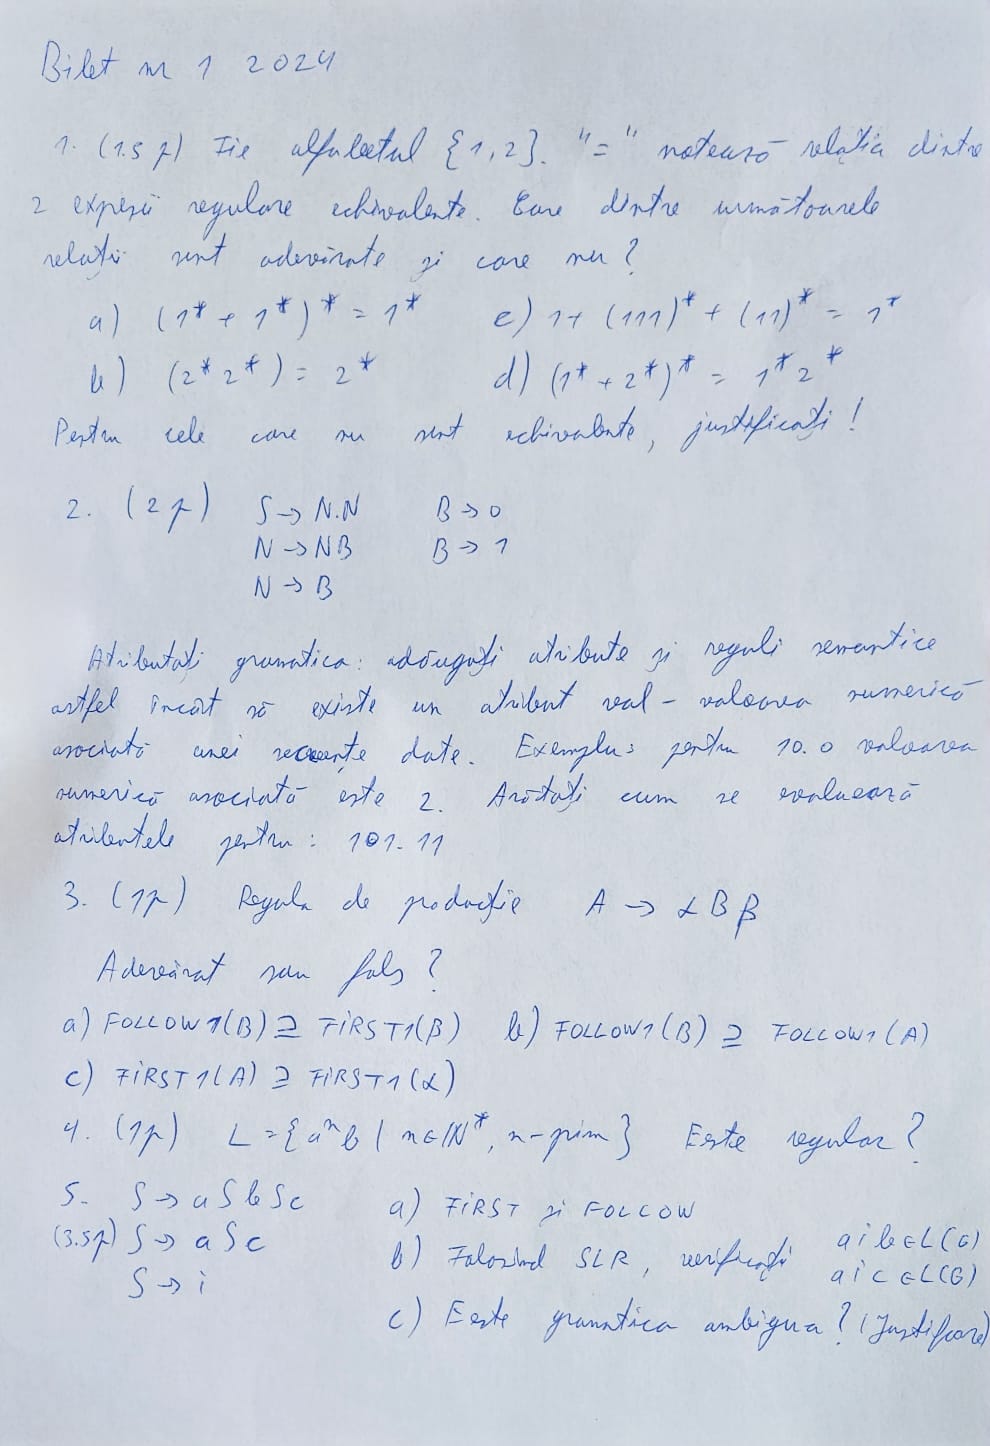 Bilet nr 1 2024
1. (1.5 p) Fie alfabetul {1,2}. "=" notează relația dintre
2 expresii regulare echivalente. Care dintre următoarele
relații sunt adevărate și care nu?
a) (1* + 1*)* = 1* c) 1+ (111)* + (11)* = 1*
b) (2* 2*) = 2* d) (1* + 2*)* = 1* 2*
Pentru cele care nu sunt echivalente, justificați!
2. (2 p) S → N.N B → 0
N → NB B → 1
N → B
Atributați gramatica: adăugați atribute și reguli semantice
astfel încât să existe un atribut val - valoarea numerică
asociată unei secvențe date. Exemplu: pentru 10.0 valoarea
numerică asociată este 2. Arătați cum se evaluează
atributele pentru: 101.11
3. (1p) Regula de producție A → αBβ
Adevărat sau fals?
a) FOLLOW1(B) ⊇ FIRST1(β) b) FOLLOW1(B) ⊇ FOLLOW1(A)
c) FIRST1(A) ⊇ FIRST1(α)
4. (1p) L = {aⁿb | n∈ℕ*, n-prim} Este regular?
5. S → aSbSc a) FIRST și FOLLOW
(3.5p) S → aSc b) Folosind SLR, verificați aib∈L(G)
S → i aic∈L(G)
c) Este gramatica ambigua? (Justificare)